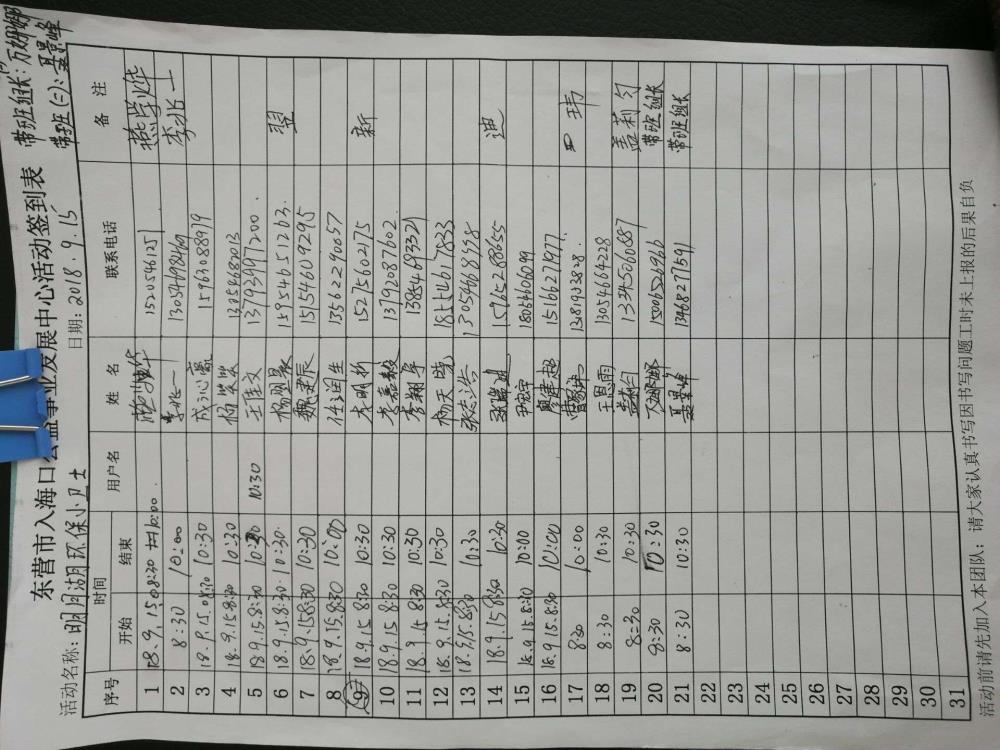 东营市入海口公益事业发展中心活动签到表 带班组长:万娜娜
活动名称:明月湖环保小卫士 日期:2018.9.15 带班(二):聂景峰
序号 时间 用户名 姓名 联系电话 备注
开始 结束
1 18.9.15 08:30 10:00 15205461251 燕学烨
2 8:30 10:00 李兆一
3 18.9.15.08:30 10:30 成沁赢 15963088979
4 18.9.15.8:30 10:30 杨 13054682013
5 18.9.15.8:30 10:30 王佳文 13793997200.
6 18.9.15.8:30. 10:30. 杨盟晨 15954651263. 翌
7 18.9.15 8:30 10:30 魏肇辰 15154609295
8 18.9.15.8:30 10:00 任润生 13562290057
9 18.9.15 8:30 10:30 李明新 15275602175 新
10 18.9.15 8:30 10:30 13792087602
11 18.9.15 8:30 10:30 李翔宇 13854693321
12 18.9.15.8:30 10:30 杨天晓 18554617833
13 18.9.15.8:30 10:30 张志浩 13054668998
14 18.9.15 8:30 10:30 15965288655 迪
15 18.9.15.8:30 10:00 尹宏宇 18064606099
16 18.9.15.8:30 10:00 廖建超 15166271977
17 8:30 10:00 13181903828 玮
18 8:30 10:30 王恩雨 13054664228
19 8:30 10:30 盖莉匀 13345060887 盖莉匀
20 8:30 10:30 万娜娜 15006522696 带班组长
21 8:30 10:30 聂景峰 13468277691 带班组长
22
23
24
25
26
27
28
29
30
31
活动前请先加入本团队;请大家认真书写因书写问题工时未上报的后果自负